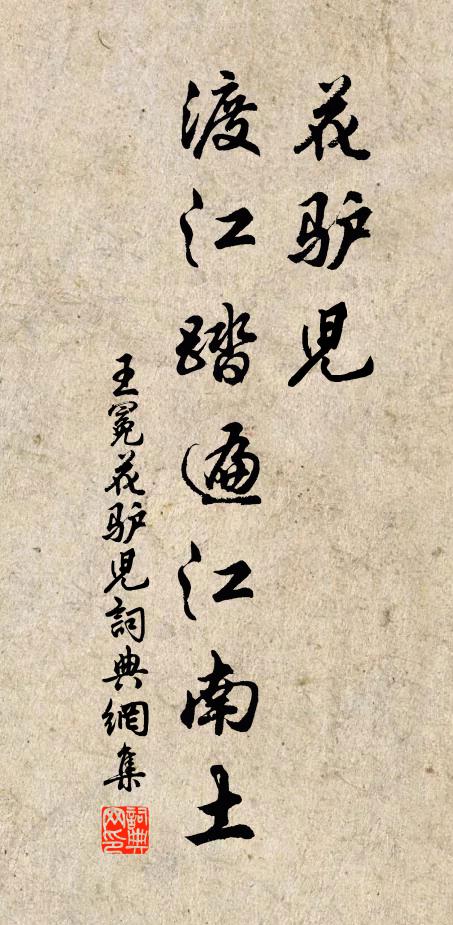 花驴児
渡江踏遍江南土
王冕花驴児詞典網集
詞典网印